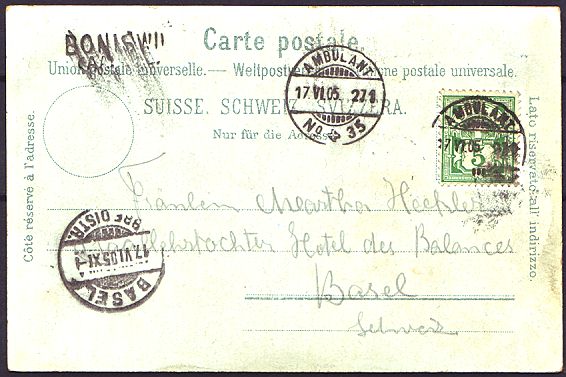 BONISWIL
Carte postale.
Union postale universelle. — Weltpostverein — Unione postale universale.
SUISSE. SCHWEIZ. SVIZZERA.
Nur für die Adresse.
AMBULANT
17.VI.05. 271
No 35
AMBULANT
17.VI.05. 271
5
Côte réservé à l'adresse.
Lato riservato all' indirizzo.
Fräulein Martha
Hotel des Balances
Basel
Schweiz
BRF. DISTR.
17.VI.05.XI-
BASEL